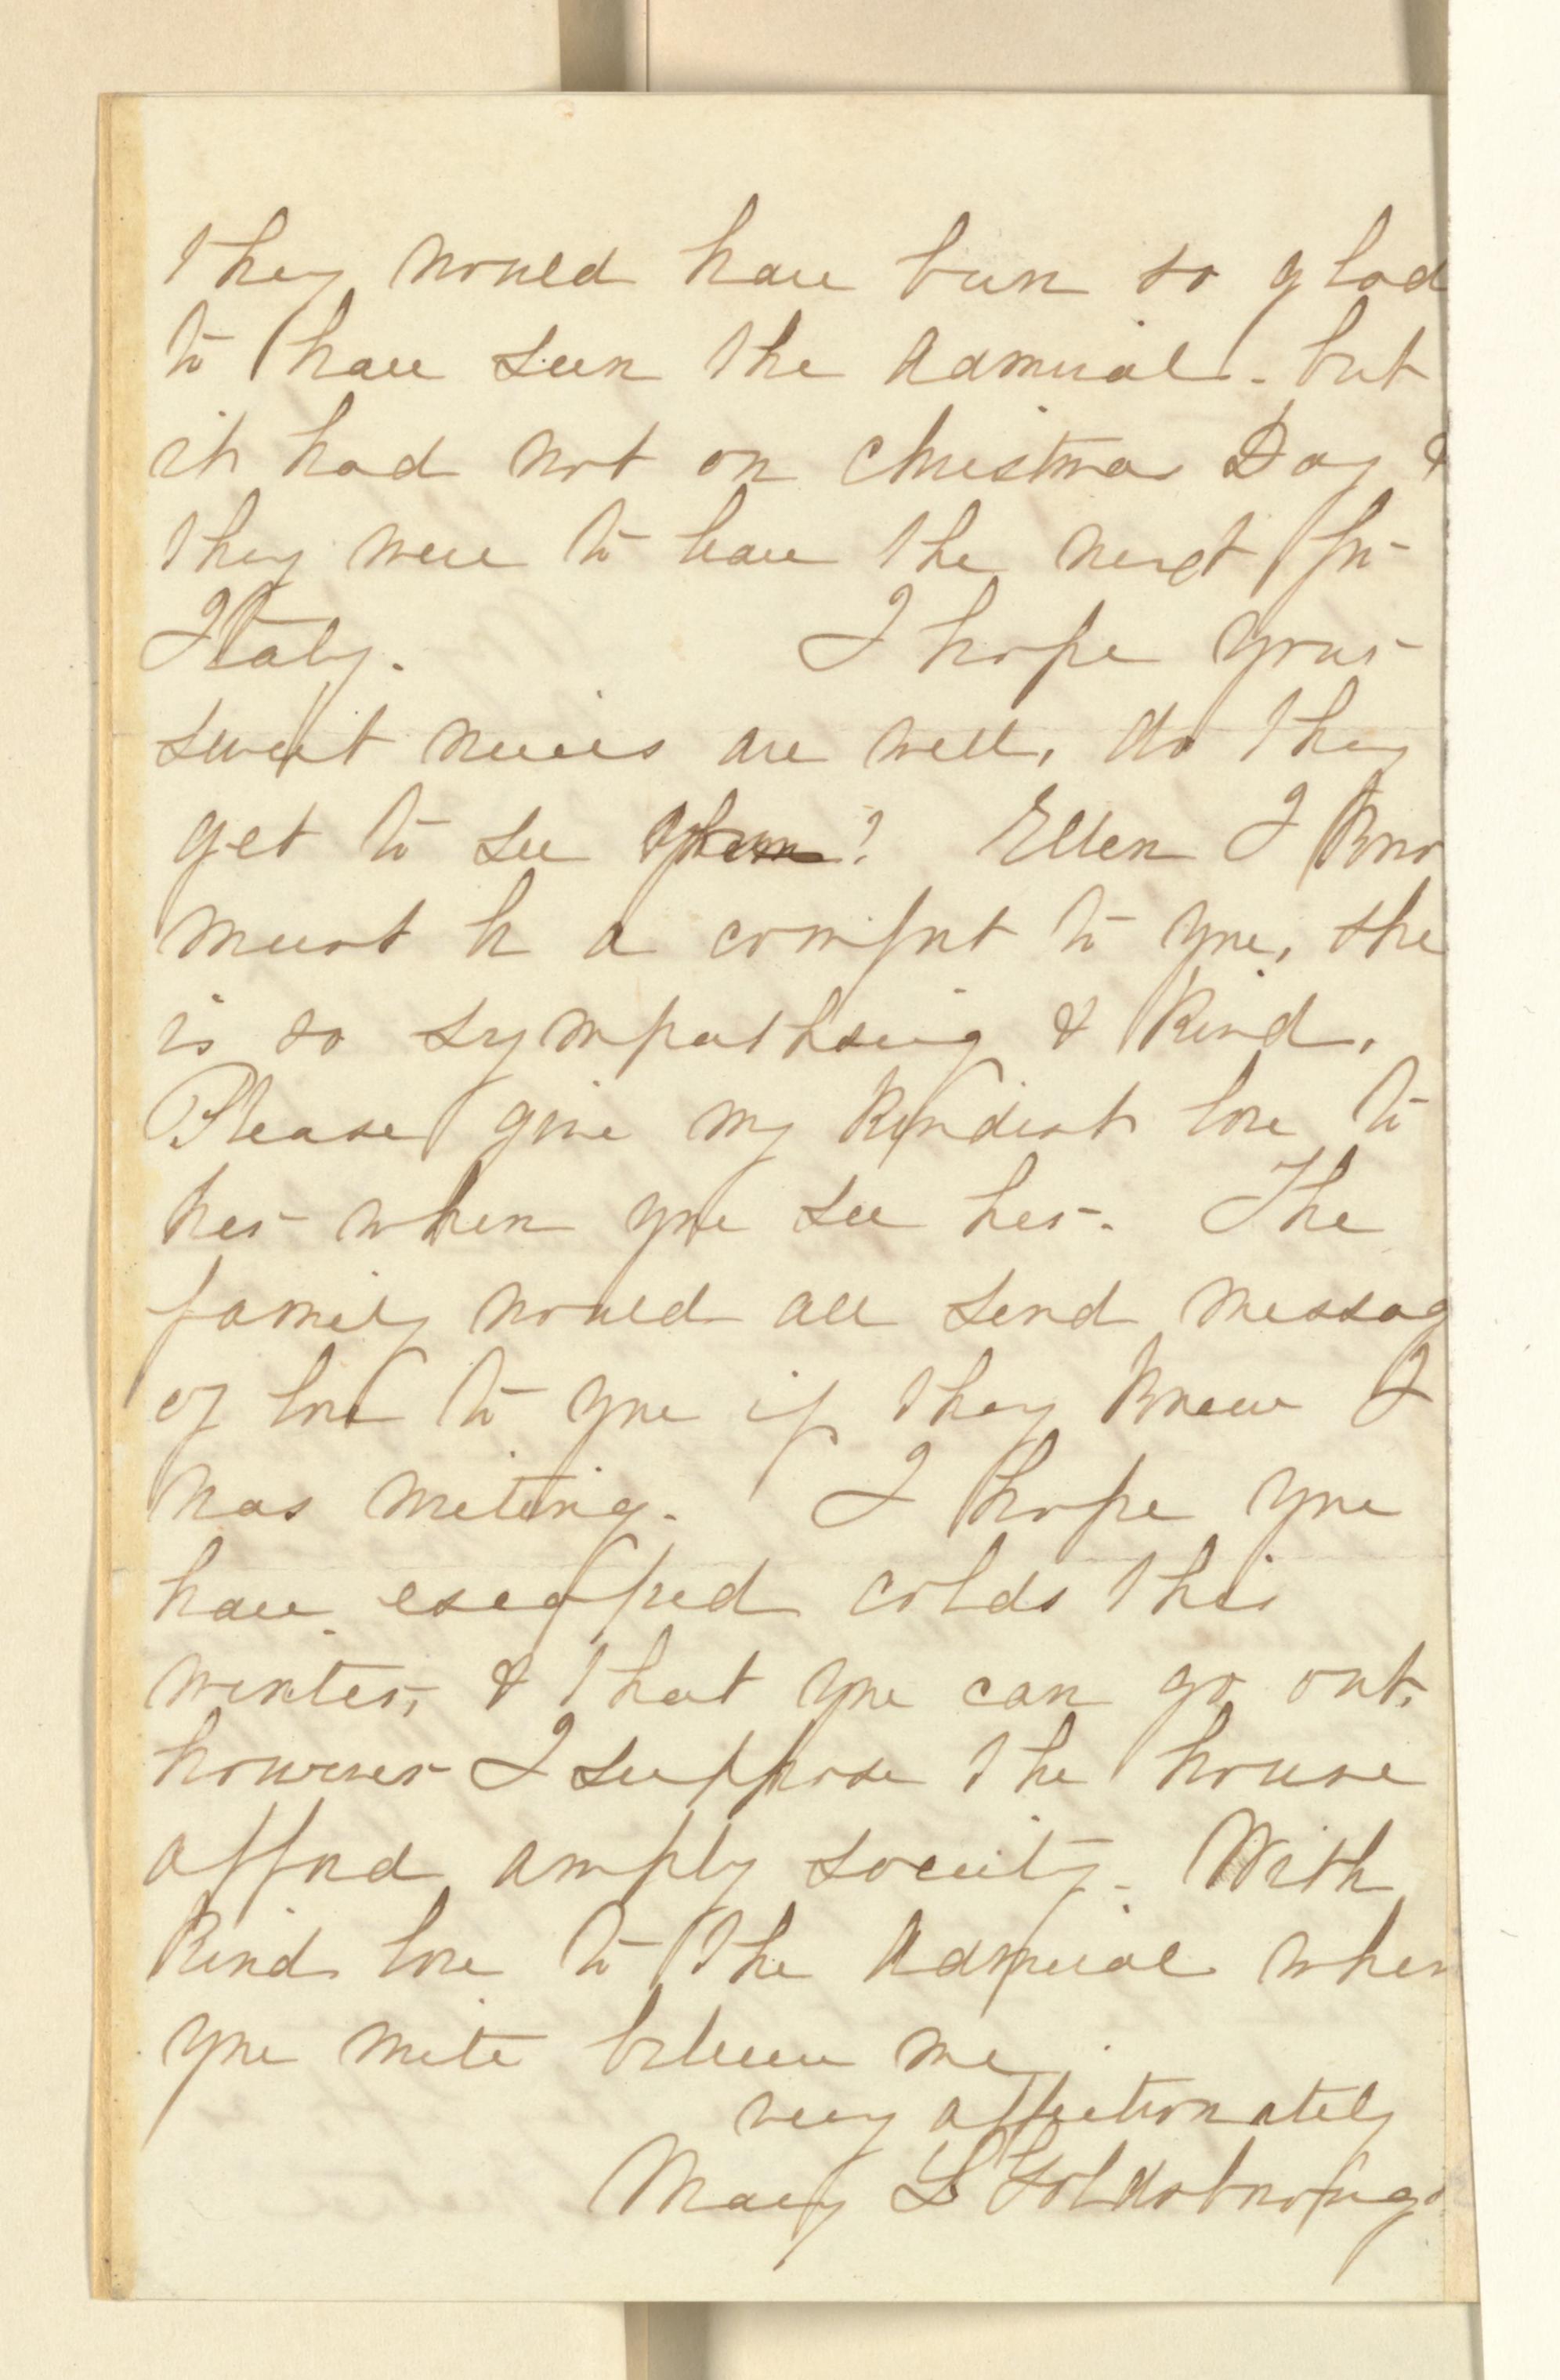 they would have been so glad
to have seen the Admiral - but
it had not on Christmas Day &
they were to leave the next for
Italy. I hope your
sweet nieces are well, do they
get to see you? Ellen I know
must be a comfort to you, she
is so sympathising & kind.
Please give my kindest love to
her when you see her. The
family would all send messag
of love to you if they knew I
was writing. I hope you
have escaped colds this
winter, & that you can go out,
however I suppose the house
afford amply society - With
kind love to the Admiral when
you write believe me
very affectionately
Mary L Goldsborough